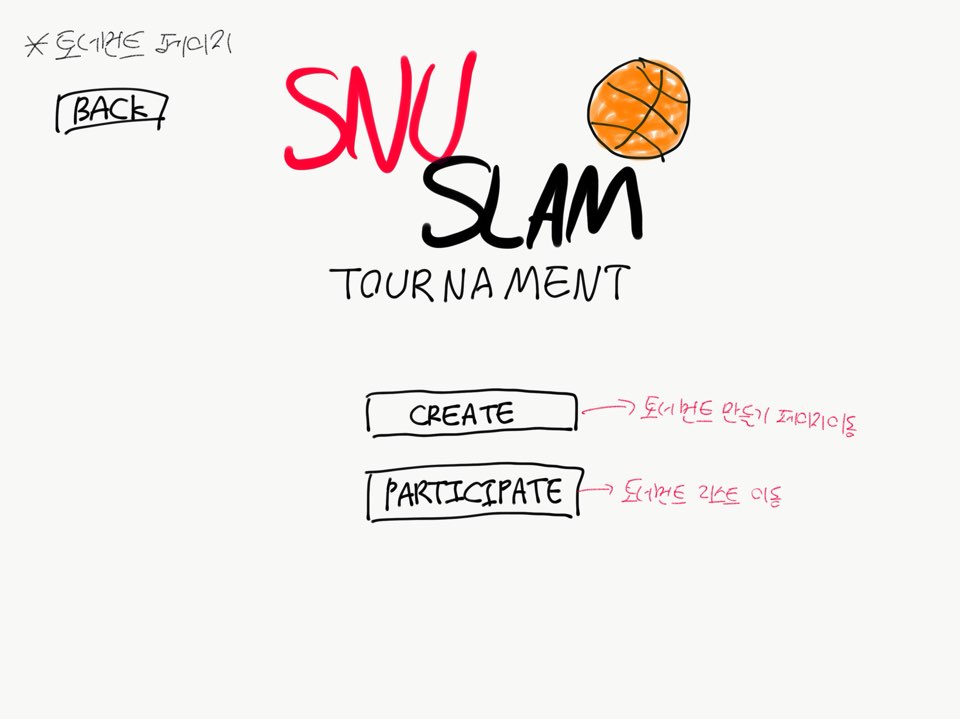 * 토너먼트 페이지
BACK
SNU
SLAM
TOURNAMENT
CREATE
토너먼트 만들기 페이지이동
PARTICIPATE
토너먼트 리스트 이동